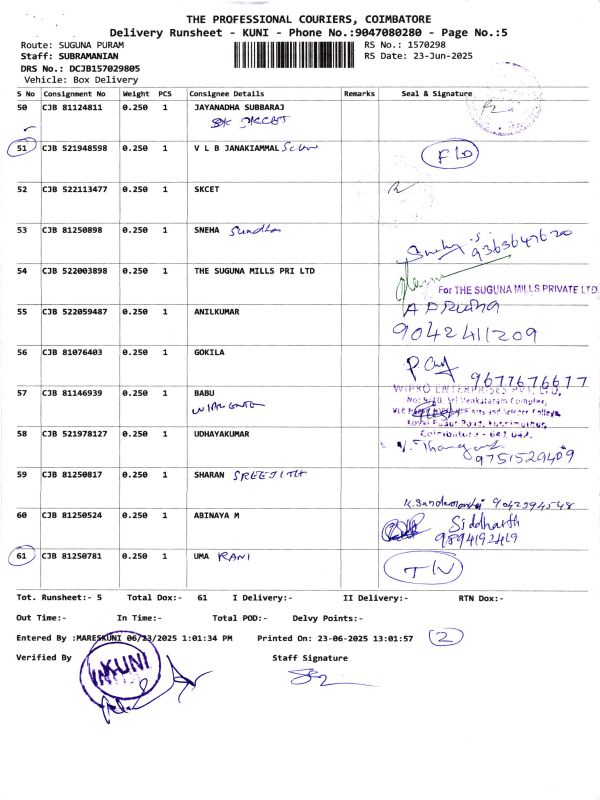 THE PROFESSIONAL COURIERS, COIMBATORE
Delivery Runsheet - KUNI - Phone No.:9047080280 - Page No.:5
Route: SUGUNA PURAM RS No.: 1570298
Staff: SUBRAMANIAN RS Date: 23-Jun-2025
DRS No.: DCJB157029805
Vehicle: Box Delivery
S No Consignment No Weight PCS Consignee Details Remarks Seal & Signature
50 CJB 81124811 0.250 1 JAYANADHA SUBBARAJ
51 CJB 521948598 0.250 1 V L B JANAKIAMMAL
52 CJB 522113477 0.250 1 SKCET
53 CJB 81250898 0.250 1 SNEHA
9363647620
54 CJB 522003898 0.250 1 THE SUGUNA MILLS PRI LTD
For THE SUGUNA MILLS PRIVATE LTD.
55 CJB 522059487 0.250 1 ANILKUMAR
9042411209
56 CJB 81076403 0.250 1 GOKILA
9677676677
57 CJB 81146939 0.250 1 BABU
WIPRO ENTERPRISES PVT. LTD,
58 CJB 521978127 0.250 1 UDHAYAKUMAR
Coimbatore - 641 042.
9751529409
59 CJB 81250817 0.250 1 SHARAN SREEJITH
9042994548
60 CJB 81250524 0.250 1 ABINAYA M Siddharth
9894192419
61 CJB 81250781 0.250 1 UMA RANI
Tot. Runsheet:- 5 Total Dox:- 61 I Delivery:- II Delivery:- RTN Dox:-
Out Time:- In Time:- Total POD:- Delvy Points:-
Entered By :MARESKUNI 06/23/2025 1:01:34 PM Printed On: 23-06-2025 13:01:57 2
Verified By Staff Signature
KUNI